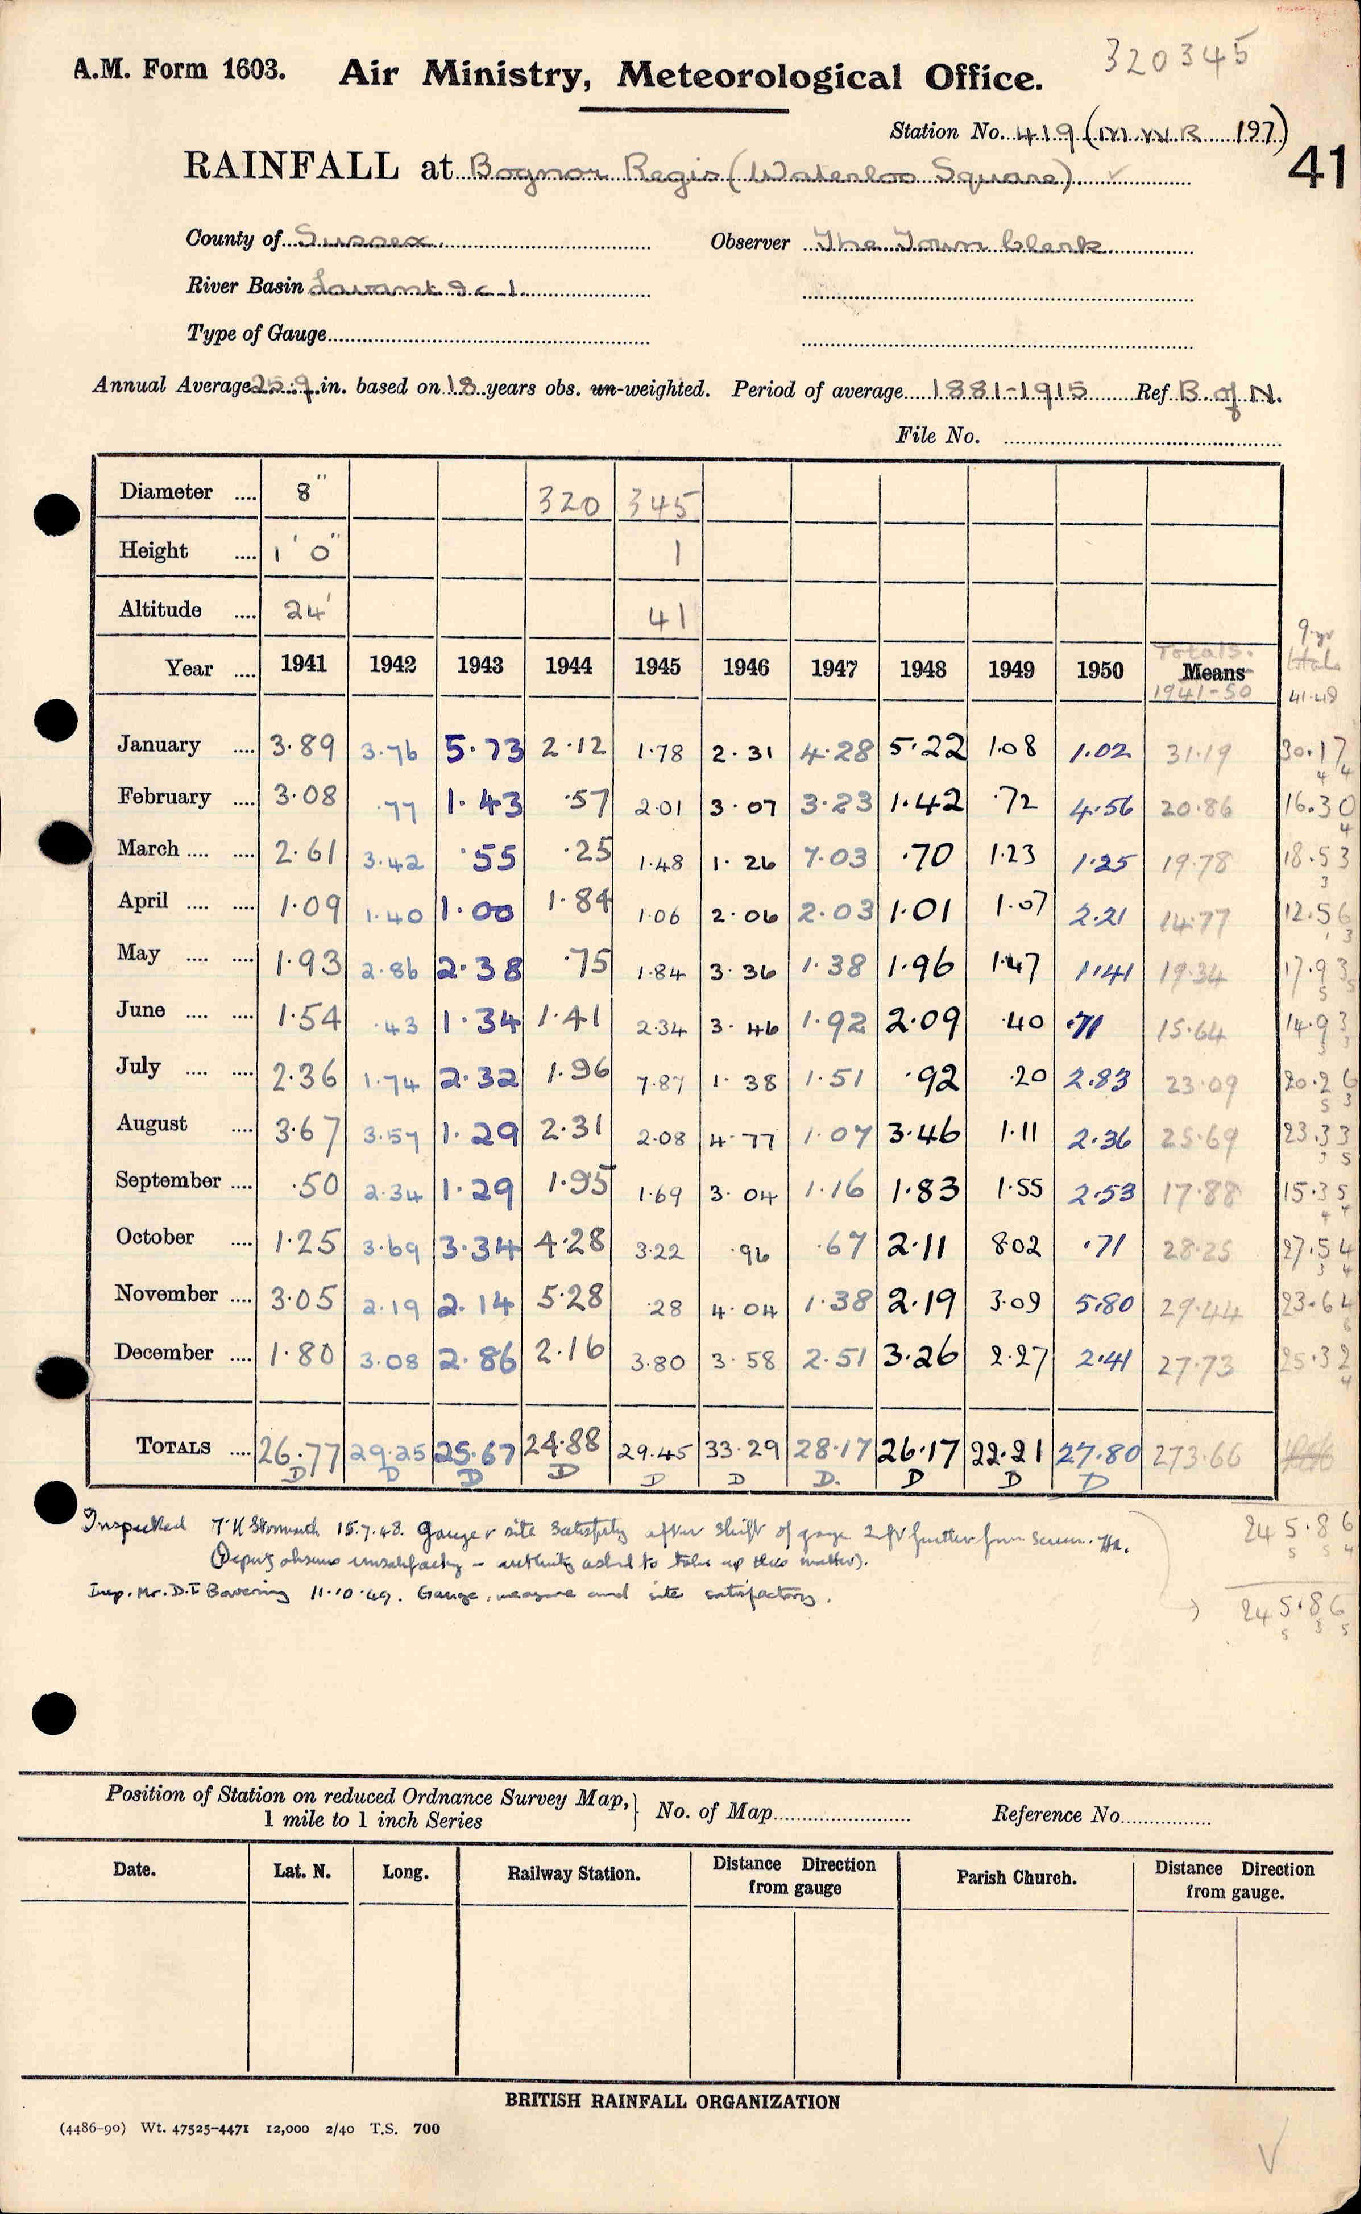 320345
A.M. Form 1603. Air Ministry, Meteorological Office.
Station No. 419 (M.W.R 197)
41
RAINFALL at Bognor Regis (Waterloo Square)
County of Sussex Observer The Town Clerk
River Basin Lavant &c 1.
Type of Gauge
Annual Average 25.9 in. based on 18 years obs. un-weighted. Period of average 1881-1915 Ref B. of N.
File No.
Diameter .... 8" 320 345
Height .... 1' 0" 1
Altitude .... 24' 41
Year .... 1941 1942 1943 1944 1945 1946 1947 1948 1949 1950 Totals. Means 1941-50 9-yr totals 41-49
January .... 3.89 3.76 5.73 2.12 1.78 2.31 4.28 5.22 1.08 1.02 31.19 30.17
February .... 3.08 .77 1.43 .57 2.01 3.07 3.23 1.42 .72 4.56 20.86 16.30
March .... .... 2.61 3.42 .55 .25 1.48 1.26 7.03 .70 1.23 1.25 19.78 18.53
April .... .... 1.09 1.40 1.00 1.84 1.06 2.06 2.03 1.01 1.07 2.21 14.77 12.56
May .... .... 1.93 2.86 2.38 .75 1.84 3.36 1.38 1.96 1.47 1.41 19.34 17.93
June .... .... 1.54 .43 1.34 1.41 2.34 3.46 1.92 2.09 .40 .71 15.64 14.93
July .... .... 2.36 1.74 2.32 1.96 7.87 1.38 1.51 .92 .20 2.83 23.09 20.26
August .... 3.67 3.57 1.29 2.31 2.08 4.77 1.07 3.46 1.11 2.36 25.69 23.33
September .... .50 2.34 1.29 1.95 1.69 3.04 1.16 1.83 1.55 2.53 17.88 15.35
October .... 1.25 3.69 3.34 4.28 3.22 .96 .67 2.11 8.02 .71 28.25 27.54
November .... 3.05 2.19 2.14 5.28 .28 4.04 1.38 2.19 3.09 5.80 29.44 23.64
December .... 1.80 3.08 2.86 2.16 3.80 3.58 2.51 3.26 2.27 2.41 27.73 25.32
TOTALS .... 26.77 29.25 25.67 24.88 29.45 33.29 28.17 26.17 22.21 27.80 273.66
D D D D D D D. D D D
245.86
Inspected 15.7.48. Gauge & site satisfactory after shift of gauge 2 ft further from screen.
(Deputy observer unsatisfactory - authority asked to take up this matter).
Insp. Mr. D.T Bowering 11.10.49. Gauge, measure and site satisfactory.
245.86
Position of Station on reduced Ordnance Survey Map, 1 mile to 1 inch Series } No. of Map Reference No
Date. Lat. N. Long. Railway Station. Distance Direction from gauge Parish Church. Distance Direction from gauge.
BRITISH RAINFALL ORGANIZATION
(4486-90) Wt. 47525-4471 12,000 2/40 T.S. 700